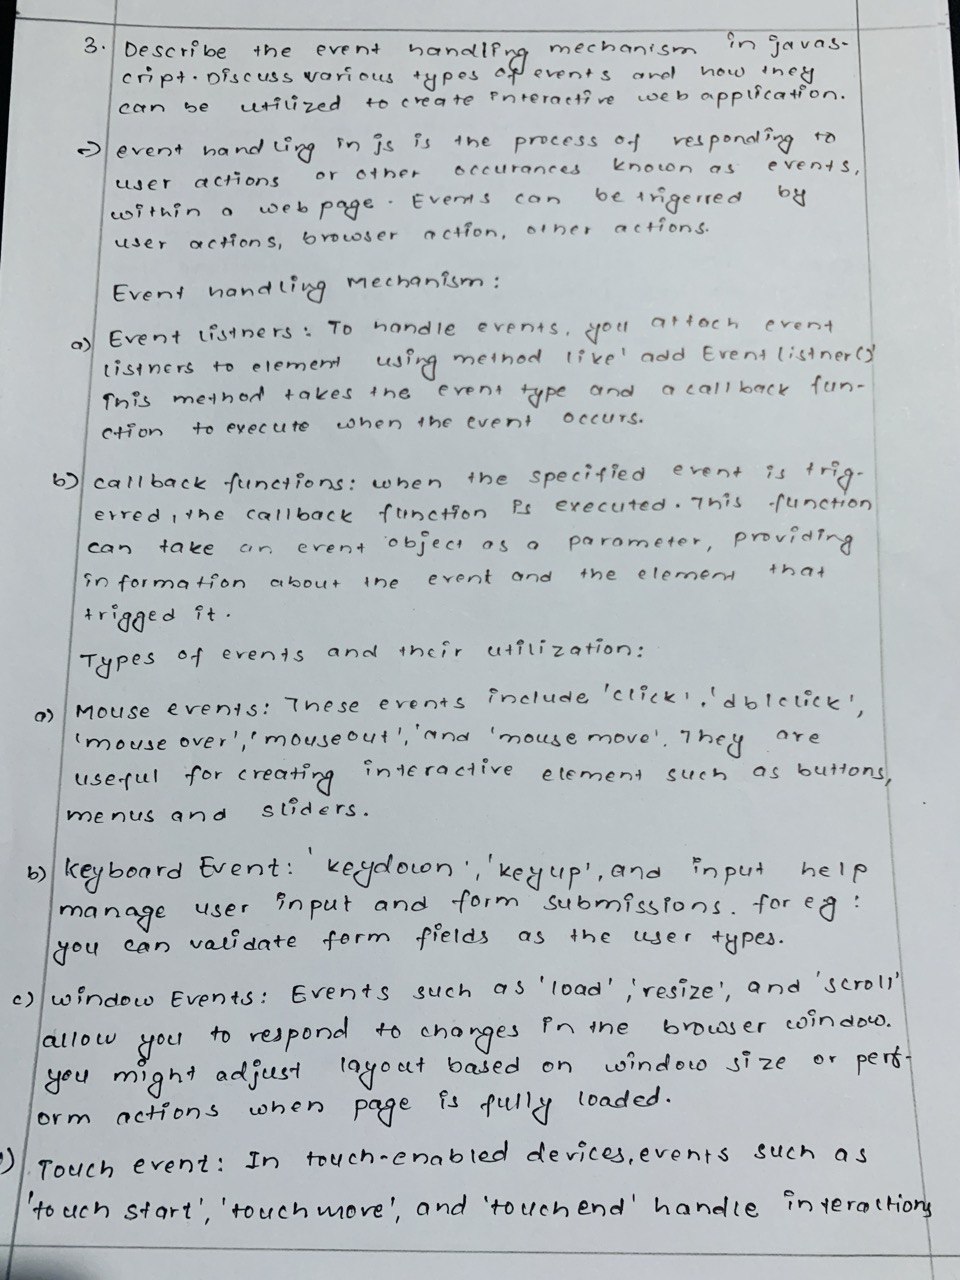 3. Describe the event handling mechanism in javas-
cript. Discuss various types of events and how they
can be utilized to create interactive web application.
→ event handling in js is the process of responding to
user actions or other occurances known as events,
within a web page. Events can be trigerred by
user actions, browser action, other actions.
Event handling Mechanism:
a) Event listners: To handle events, you attach event
listners to element using method like 'add Event listner()'
This method takes the event type and a callback fun-
ction to execute when the event occurs.
b) callback functions: when the specified event is trig-
erred, the callback function is executed. This function
can take an event object as a parameter, providing
information about the event and the element that
trigged it.
Types of events and their utilization:
a) Mouse events: These events include 'click', 'dblclick',
'mouse over', 'mouseout', 'and 'mouse move'. They are
useful for creating interactive element such as buttons,
menus and sliders.
b) keyboard Event: 'keydown', 'keyup', and input help
manage user input and form submissions. for eg:
you can validate form fields as the user types.
c) window Events: Events such as 'load', 'resize', and 'scroll'
allow you to respond to changes in the browser window.
you might adjust layout based on window size or perf-
orm actions when page is fully loaded.
) Touch event: In touch-enabled devices, events such as
'touch start', 'touch move', and 'touch end' handle interactions